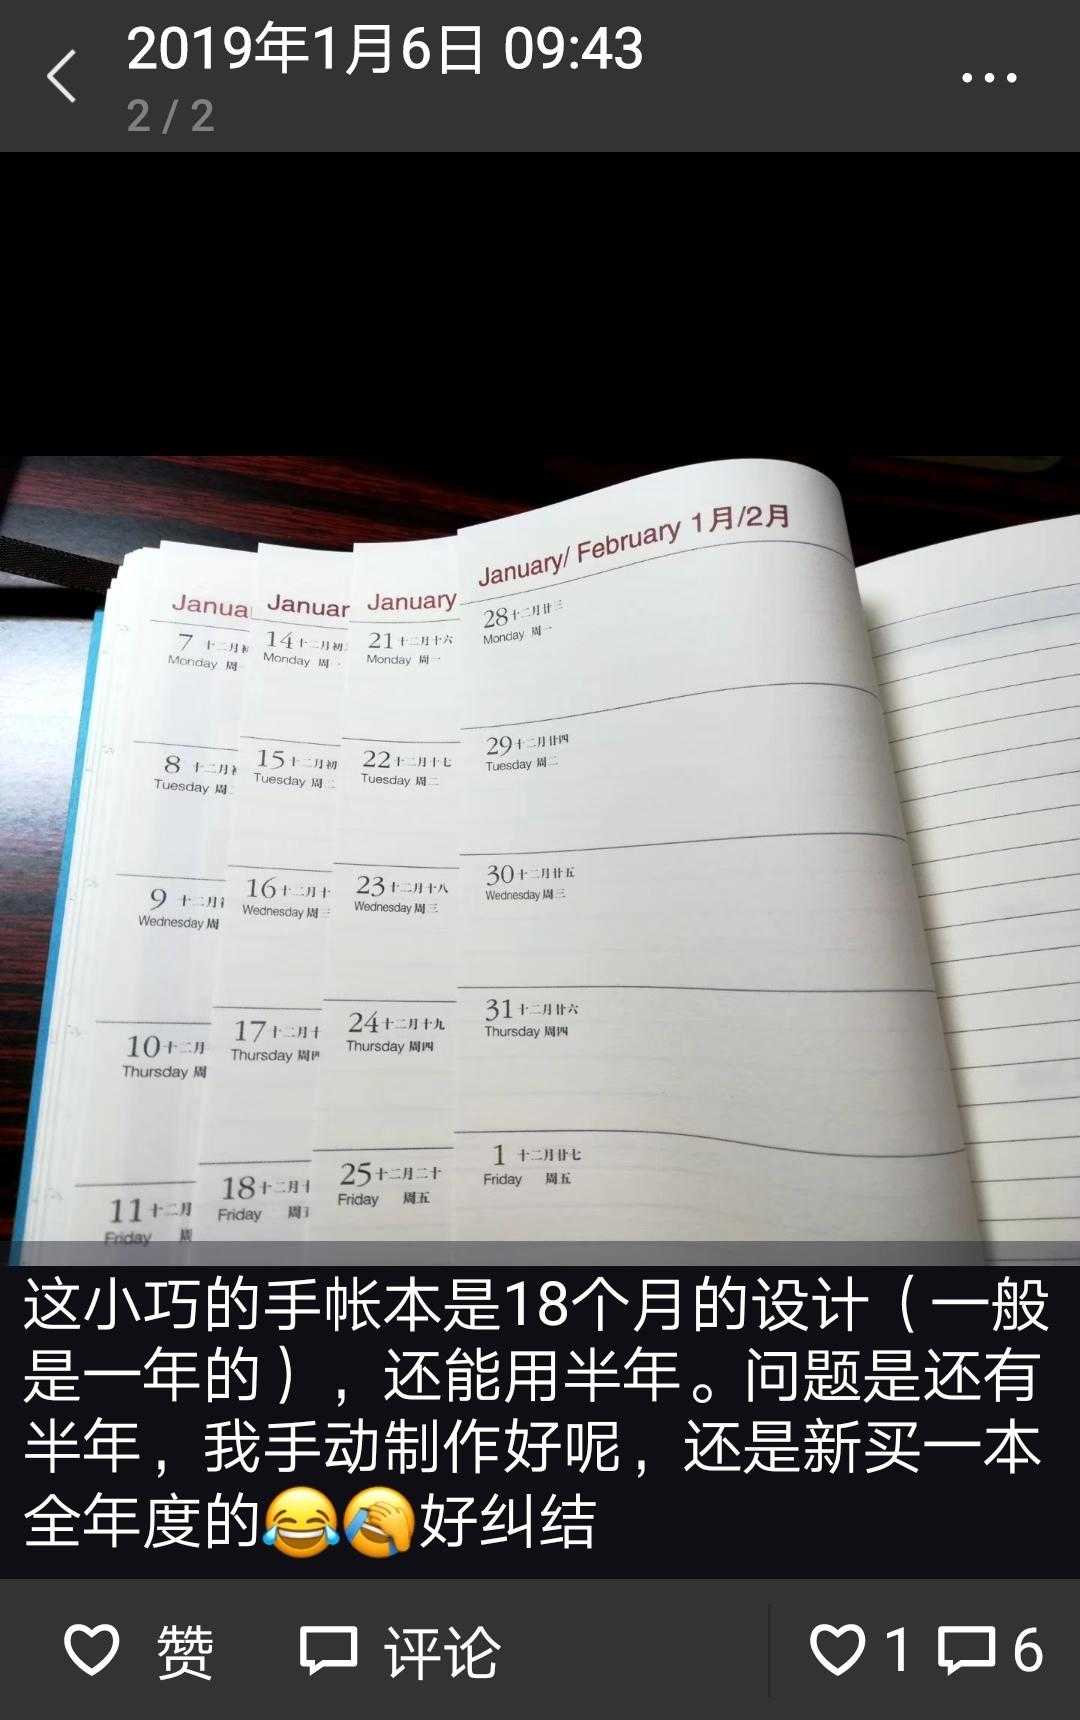 2019年1月6日 09:43
2 / 2
January/ February 1月/2月
January
Januar
Janua
7
Monday 周
14
Monday 周
21 十二月十六
Monday 周一
28 十二月廿三
Monday 周一
8
Tuesday 周
15
Tuesday 周二
22 十二月十七
Tuesday 周二
29 十二月廿四
Tuesday 周二
9
Wednesday 周
16 十二月十
Wednesday 周三
23 十二月十八
Wednesday 周三
30 十二月廿五
Wednesday 周三
10 十二月
Thursday 周
17 十二月十
Thursday 周四
24 十二月十九
Thursday 周四
31 十二月廿六
Thursday 周四
11 十二月
Friday 周
18 十二月十
Friday 周五
25 十二月二十
Friday 周五
1 十二月廿七
Friday 周五
这小巧的手帐本是18个月的设计（一般
是一年的），还能用半年。问题是还有
半年，我手动制作好呢，还是新买一本
全年度的😂🤦好纠结
赞 评论 1 6